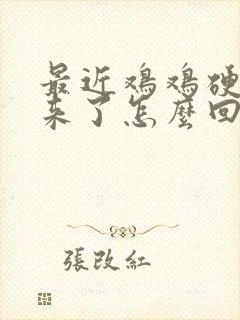 最近鸡鸡硬
来了怎麼回
張改紅